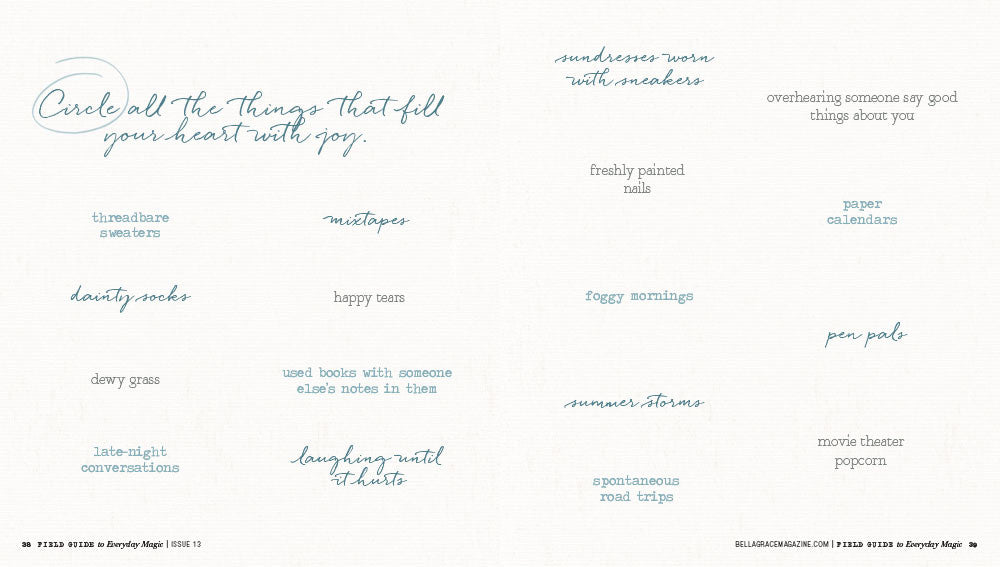 Circle all the things that fill
your heart with joy.
threadbare
sweaters
mixtapes
dainty socks
happy tears
dewy grass
used books with someone
else's notes in them
late-night
conversations
laughing until
it hurts
38 FIELD GUIDE to Everyday Magic | ISSUE 13
sundresses worn
with sneakers
overhearing someone say good
things about you
freshly painted
nails
paper
calendars
foggy mornings
pen pals
summer storms
movie theater
popcorn
spontaneous
road trips
BELLAGRACEMAGAZINE.COM | FIELD GUIDE to Everyday Magic 39